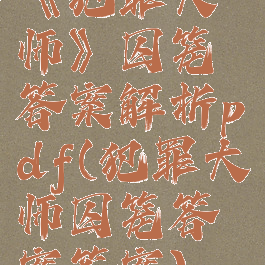 《犯罪大
师》囚笼
答案解析p
df(犯罪大
师囚笼答
案答案)